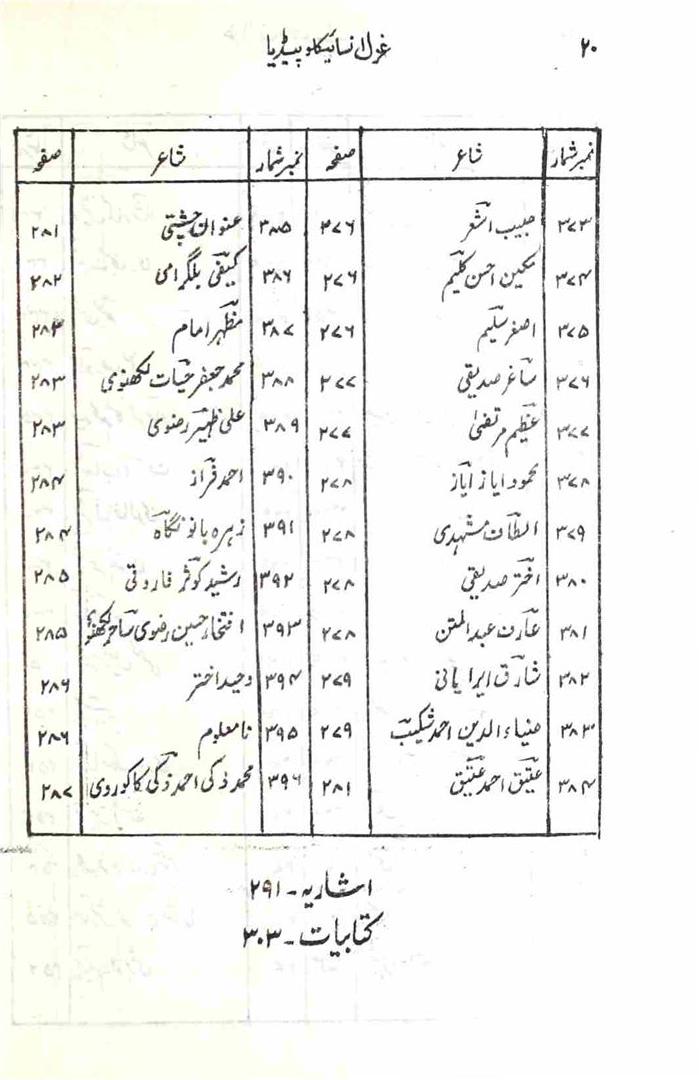 ۲۰ غزل انسائیکلوپیڈیا
نمبر شمار شاعر صفحہ نمبر شمار شاعر صفحہ
۳۷۳ حبیب اشعرؔ ۲۷۶ ۳۸۵ عنوان چشتی ۲۸۱
۳۷۴ مکین احسن کلیمؔ ۲۷۶ ۳۸۶ کیفیؔ بلگرامی ۲۸۲
۳۷۵ اصغر سلیمؔ ۲۷۶ ۳۸۷ مظہرؔ امام ۲۸۳
۳۷۶ ساغرؔ صدیقی ۲۷۷ ۳۸۸ محمد جعفر حیاتؔ لکھنوی ۲۸۳
۳۷۷ عظیمؔ مرتضیٰ ۲۷۷ ۳۸۹ علی ظہیرؔ رضوی ۲۸۳
۳۷۸ محمود ایاز ایازؔ ۲۷۸ ۳۹۰ احمد فرازؔ ۲۸۴
۳۷۹ الطافؔ مشہدی ۲۷۸ ۳۹۱ زہرہ بانو نگاہؔ ۲۸۴
۳۸۰ اخترؔ صدیقی ۲۷۸ ۳۹۲ رشید کوثرؔ فاروقی ۲۸۵
۳۸۱ عارفؔ عبدالمتین ۲۷۸ ۳۹۳ افتخار حسین رضوی ساحرؔ لکھنوی ۲۸۵
۳۸۲ شارقؔ ایرایانی ۲۷۹ ۳۹۴ وحید اختر ۲۸۶
۳۸۳ ضیاء الدین احمد شکیبؔ ۲۷۹ ۳۹۵ نامعلوم ۲۸۶
۳۸۴ عتیق احمد عتیقؔ ۲۸۱ ۳۹۶ محمد ذکی احمد ذکیؔ کاکوروی ۲۸۷
اشاریہ ۔ ۲۹۱
کتابیات ۔ ۳۰۳